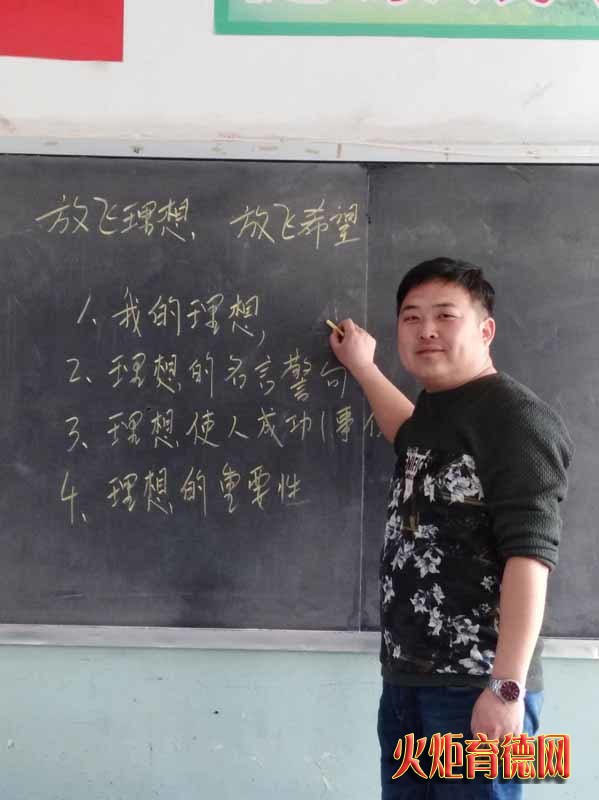 放飞理想，放飞希望
1、我的理想，
2、理想的名言警句
3、理想使人成功（事
4、理想的重要性
火炬育德网